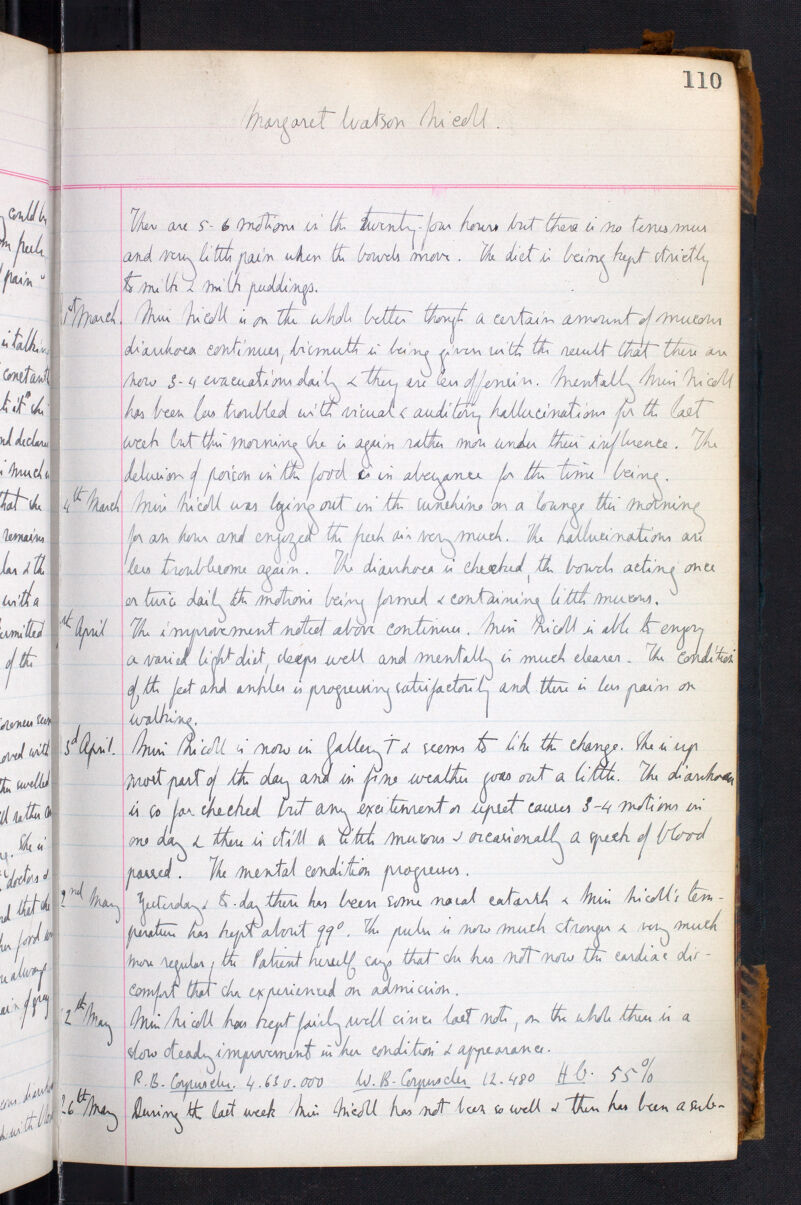 110
Margaret Watson Nicoll.
There are 5-6 motions in the twenty-four hours but there is no tenesmus
and very little pain when the bowels move. The diet is being kept strictly
to milk & milk puddings.
1st March. Miss Nicoll is on the whole better though a certain amount of mucous
diarrhoea continues, bismuth is being given with the result that there are
now 3-4 evacuations daily & they are less offensive. Mentally Miss Nicoll
has been less troubled with visual & auditory hallucinations for the last
week but this morning she is again rather more under their influence. The
delusion of poison in the food is in abeyance for the time being.
4th March Miss Nicoll was lying out in the sunshine on a lounge this morning
for an hour and enjoyed the fresh air very much. The hallucinations are
less troublesome again. The diarrhoea is checked, the bowels acting once
or twice daily the motions being formed & containing little mucous.
April The improvement noted above continues. Miss Nicoll is able to enjoy
a varied light diet, sleeps well and mentally is much clearer. The condition
of the feet and ankles is progressing satisfactorily and there is less pain on
walking.
3d April. Miss Nicoll is now in Gallery & seems to like the change. She is up
most part of the day and in fine weather goes out a little. The diarrhoea
is so far checked but any excitement or upset causes 3-4 motions in
one day & there is still a little mucous & occasionally a speck of blood
passed. The mental condition progresses.
2nd May Yesterday & to-day there has been some nasal catarrh & Miss Nicoll's tem-
perature has kept about 99°. The pulse is now much stronger & very much
more regular; the Patient herself says that she has not now the cardiac dis-
comfort that she experienced on admission.
2th May Miss Nicoll has kept fairly well since last note, on the whole there is a
slow steady improvement in her condition & appearance.
R.B. Corpuscles. 4.630.000 W.B. Corpuscles 12.480 Hb. 55%
26th May During the last week Miss Nicoll has not been so well & there has been a sub-